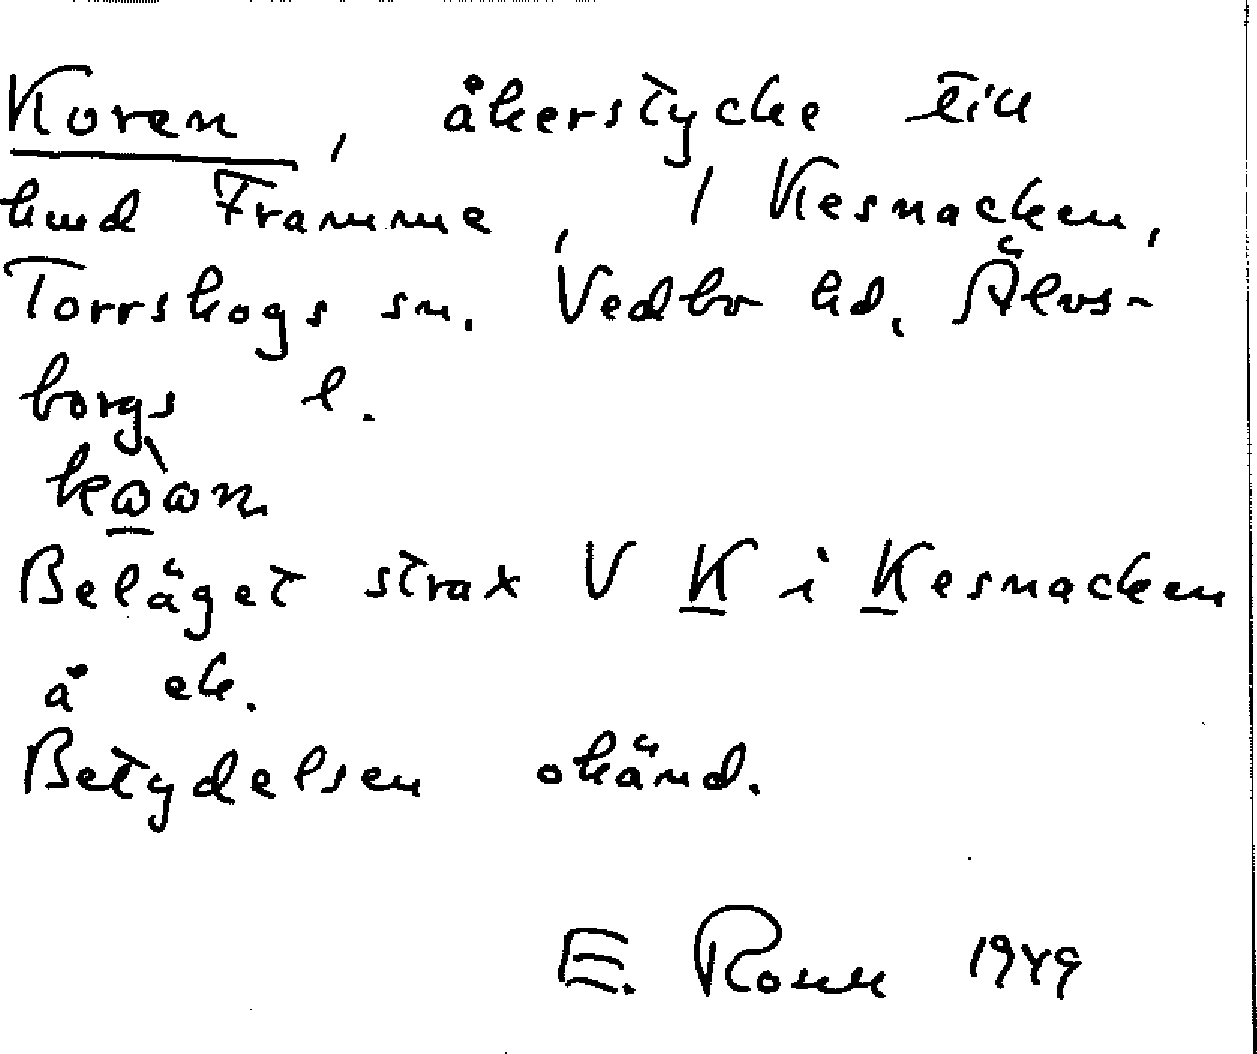 Koren, åkerstycke till
hmd Framme, 1 Kesnacken,
Torrskogs sn. Vedbo hd. Älvs-
borgs l.
Beläget strax V K i Kesnacken
å ek.
Betydelsen okänd.
E. 1949